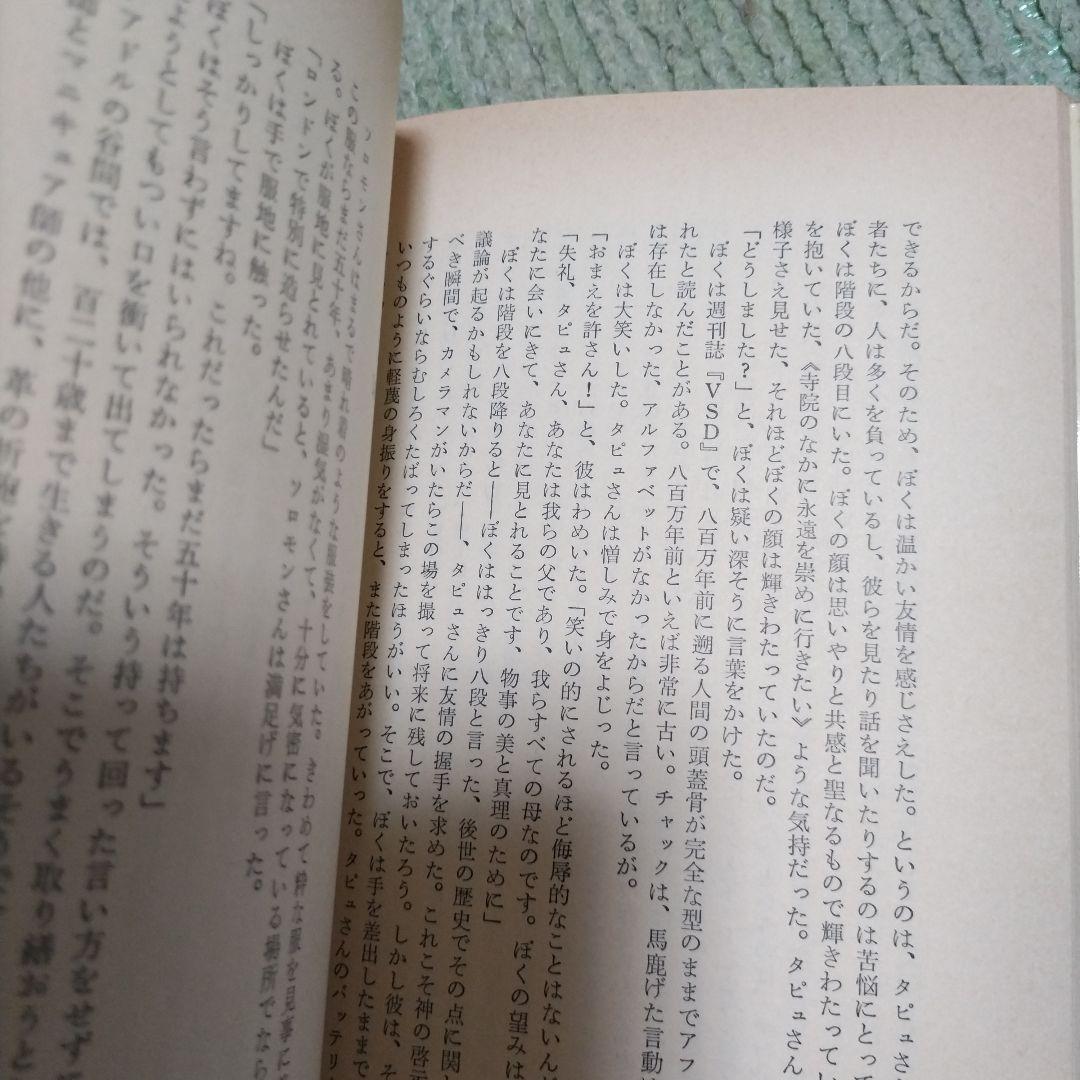 できるからだ。そのため、ぼくは温かい友情を感じさえした。というのは、タピュさ
者たちに、人は多くを負っているし、彼らを見たり話を聞いたりするのは苦悩にとって
ぼくは階段の八段目にいた。ぼくの顔は思いやりと共感と聖なるもので輝きわたってい
を抱いていた、《寺院のなかに永遠を崇めに行きたい》ような気持だった。タピュさん
様子さえ見せた、それほどぼくの顔は輝きわたっていたのだ。
「どうしました？」と、ぼくは疑い深そうに言葉をかけた。
ぼくは週刊誌『ＶＳＤ』で、八百万年前に遡る人間の頭蓋骨が完全な型のままでアフ
れたと読んだことがある。八百万年前といえば非常に古い。チャックは、馬鹿げた言動
は存在しなかった、アルファベットがなかったからだと言っているが。
ぼくは大笑いした。タピュさんは憎しみで身をよじった。
「おまえを許さん！」と、彼はわめいた。「笑いの的にされるほど侮辱的なことはないん
「失礼、タピュさん、あなたは我らの父であり、我らすべての母なのです。ぼくの望みは
なたに会いにきて、あなたに見とれることです、物事の美と真理のために」
ぼくは階段を八段降りると――ぼくははっきり八段と言った、後世の歴史でその点に関し
議論が起るかもしれないからだ――、タピュさんに友情の握手を求めた。これこそ神の啓示
べき瞬間で、カメラマンがいたらこの場を撮って将来に残しておいたろう。しかし彼は、そ
するぐらいならむしろくたばってしまったほうがいい。そこで、ぼくは手を差出したままで
いつものように軽蔑の身振りをすると、また階段をあがっていった。タピュさんのバッテリ
ソロモンさんはまるで晴れ着のような服装をしていた。きわめて粋な服を見事に
この服ならまだ五十年、あまり湿気がなくて、十分に気密になっている場所でなら
る。ぼくが服地に見とれていると、ソロモンさんは満足げに言った。
「ロンドンで特別に造らせたんだ」
ぼくは手で服地に触った。
「しっかりしてますね。これだったらまだ五十年は持ちます」
ぼくはそう言わずにはいられなかった。そういう持って回った言い方をせず
ようとしてもつい口を衝いて出てしまうのだ。そこでうまく取り繕おうと
アドルの谷間では、百二十歳まで生きる人たちがいる
とマニキュア師の他に、革の折鞄